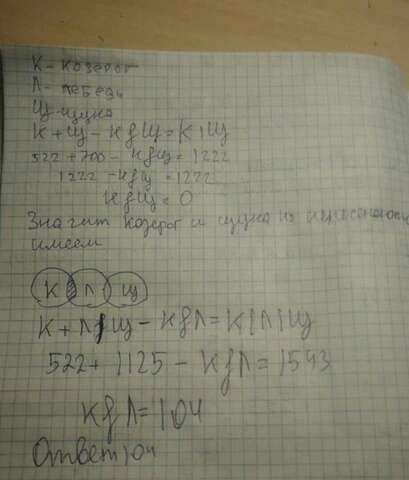 К - козерог
Л - лебедь
Щ - щука
К + Щ - К & Щ = К | Щ
522 + 700 - К & Щ = 1222
1222 - К & Щ = 1222
К & Щ = 0
Значит козерог и щука не
имеем
К Л Щ
К + Л | Щ - К & Л = К | Л | Щ
522 + 1125 - К & Л = 1543
К & Л = 104
Ответ 104